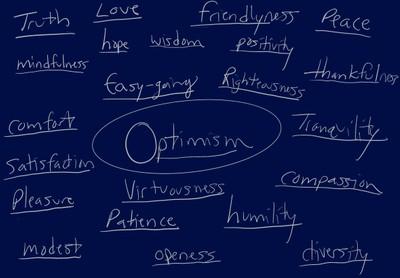 Truth
Love
friendlyness
Peace
hope
wisdom
positivity
mindfulness
Easy-going
Righteousness
thankfulness
Comfort
Optimism
Tranquility
Satisfaction
Pleasure
Virtuousness
Compassion
Patience
humility
modest
openess
diversity